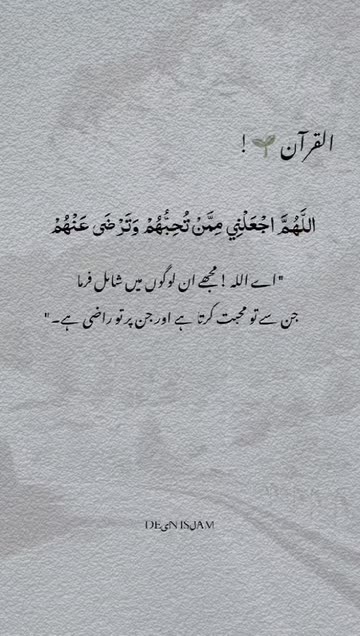 القرآن 🌱 !
اللَّهُمَّ اجْعَلْنِي مِمَّنْ تُحِبُّهُمْ وَتَرْضَى عَنْهُمْ
"اے اللہ ! مجھے ان لوگوں میں شامل فرما
جن سے تو محبت کرتا ہے اور جن پر تو راضی ہے۔"